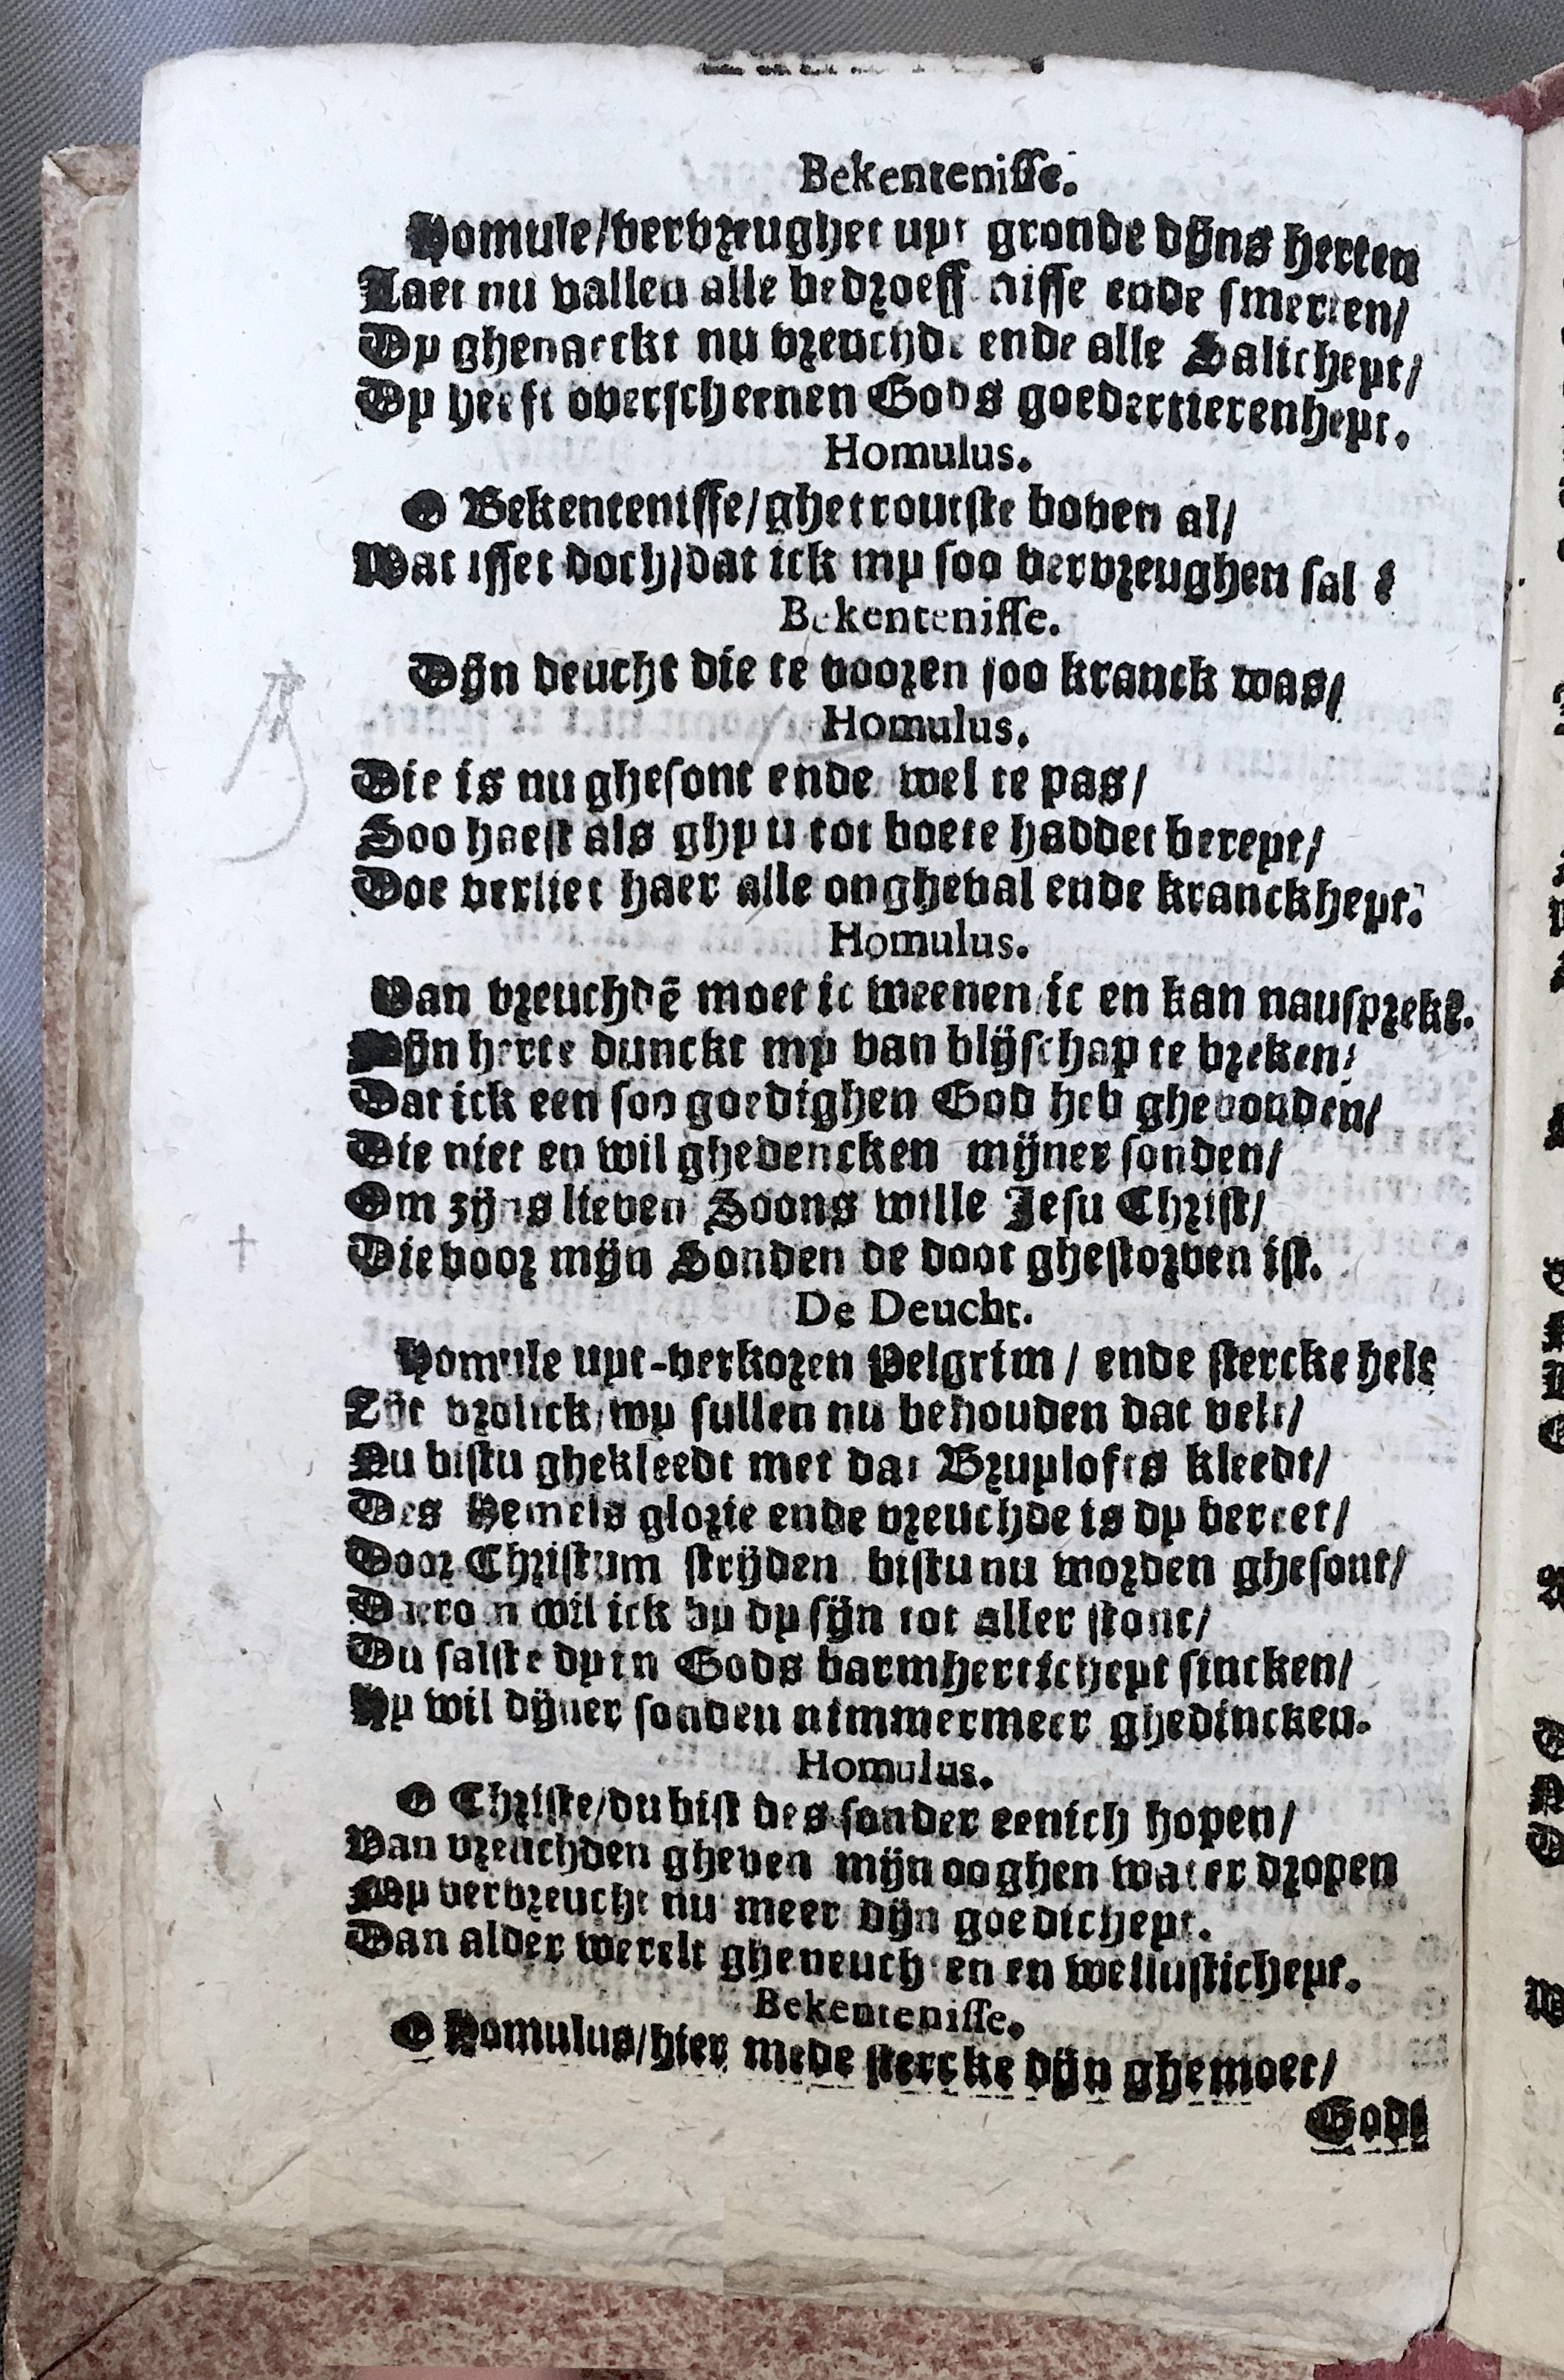 Bekentenisse.
Homule/vervreughet uyt gronde dijns herten
Laet nu vallen alle bedroeff nisse ende smerten/
Dy ghenaeckt nu vreuchde ende alle Salicheyt/
Dy heeft overscheenen Gods goedertierenheyt.
Homulus.
O Bekentenisse/ghetroutste boven al/
Wat isset doch/dat ick my soo vervreughen sal?
Bekentenisse.
Dijn deucht die te vooren soo kranck was/
Homulus.
Die is nu ghesont ende wel te pas/
Soo haest als ghy u tot boete haddet bereyt/
Doe verliet haer alle ongheval ende kranckheyt.
Homulus.
Van vreuchdē moet ic weenen/ic en kan nau sprekē.
Mijn herte dunckt my van blijschap te breken/
Dat ick een soo goedighen God heb ghevonden/
Die niet en wil ghedencken mijner sonden/
Om zijns lieven Soons wille Jesu Christ/
Die voor mijn Sonden de doot ghestorven ist.
De Deucht.
Homule uyt-verkoren Pelgrim / ende stercke helt
Zijt vrolick/wy sullen nu behouden dat velt/
Nu bistu ghekleedt met dat Bruylofts kleedt/
Des Hemels glorie ende vreuchde is dy bereet/
Door Christum strijden bistu nu worden ghesont/
Daerom wil ick by dy sijn tot aller stont/
Du salste dy in Gods barmherticheyt sincken/
Hy wil dijner sonden nimmermeer ghedincken.
Homulus.
O Christe/du bist des sonder eenich hopen/
Van vreuchden gheven mijn ooghen water dropen
My vervreucht nu meer dijn goedicheyt.
Dan alder werelt gheneuchten en wellusticheyt.
Bekentenisse.
O Homulus/hier mede stercke dijn ghemoet/
Godt